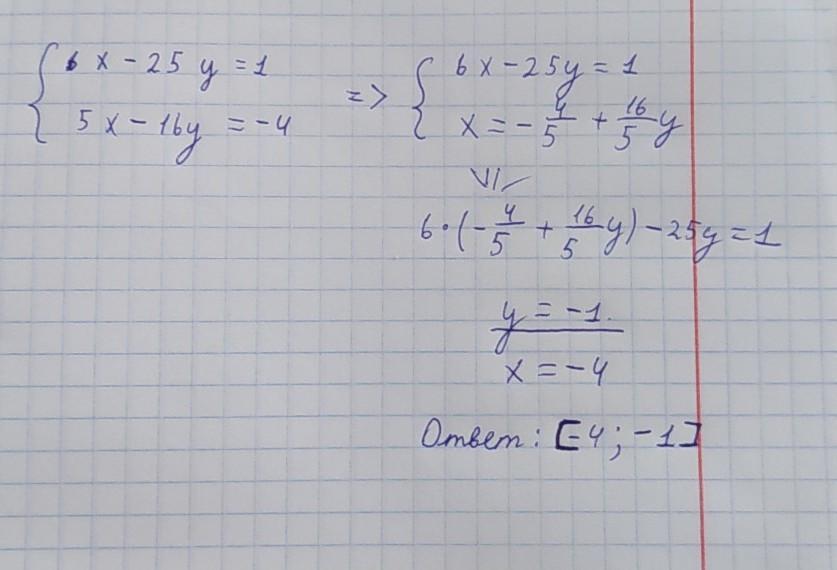 6x - 25y = 1
5x - 16y = -4
=>
6x - 25y = 1
x = -4/5 + 16/5 y
6·(-4/5 + 16/5 y) - 25y = 1
y = -1.
x = -4
Ответ: [-4; -1]